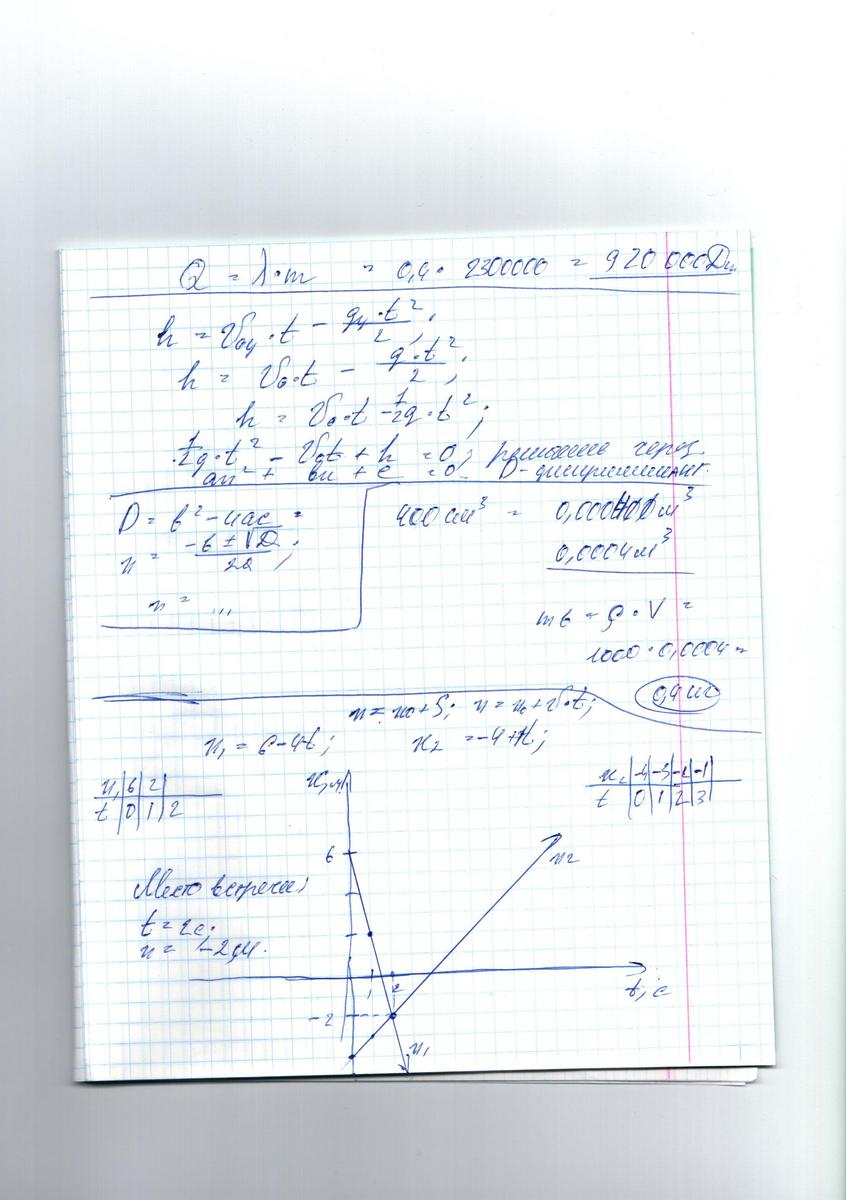 Q = λ·m = 0,4 · 2300000 = 920 000 Дж
h = V₀y · t − gy·t²/2;
h = V₀·t − g·t²/2;
h = V₀·t − 1/2g·t²;
1/2g·t² − V₀t + h = 0; решаем через
ax² + bx + c = 0 D-дискриминант.
D = b² − 4ac =
x = −b ± √D / 2a;
x = ...
400 см³ = м³
0,0004 м³
mв = ρ · V =
1000 · 0,0004 =
0,4 кг
x = x₀ + S; x = x₀ + V·t;
x₁ = 6 − 4t; x₂ = −4 + t;
x₁ 6 2
t 0 1 2
x₂ −4 −3 −2 −1
t 0 1 2 3
x, м
6
x₂
Место встречи:
t = 2c;
x = −2 м.
1 2
t, c
−2
x₁